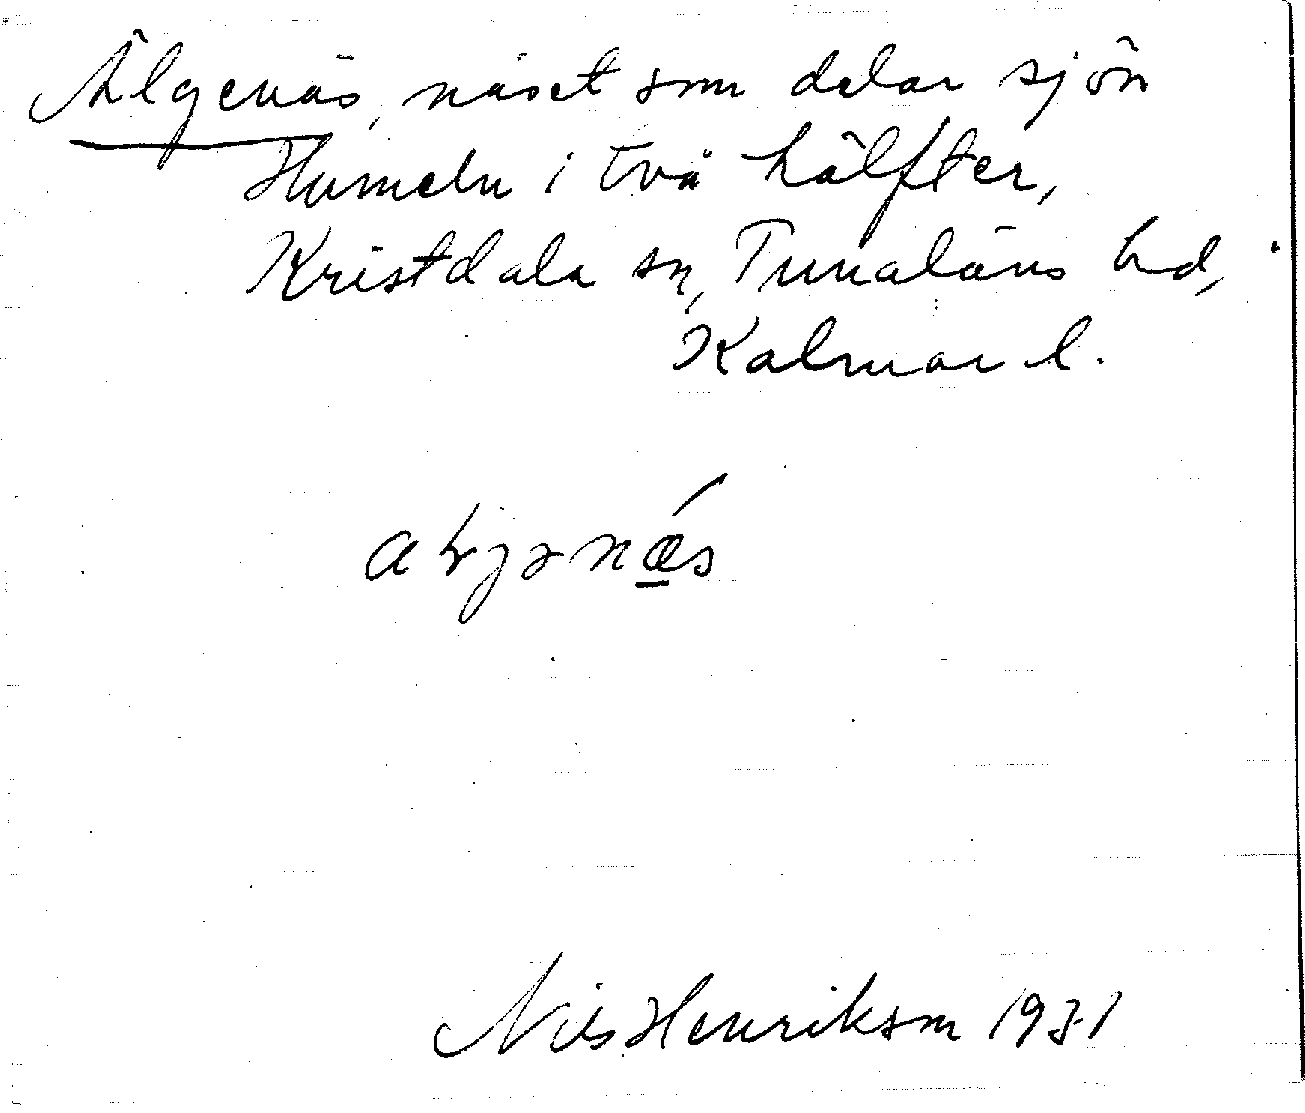 Älgenäs, näset som delar sjön
Humeln i två hälfter,
Kristdala sn, Tunaläns hd,
Kalmar l.
Nils Henrikson 1931